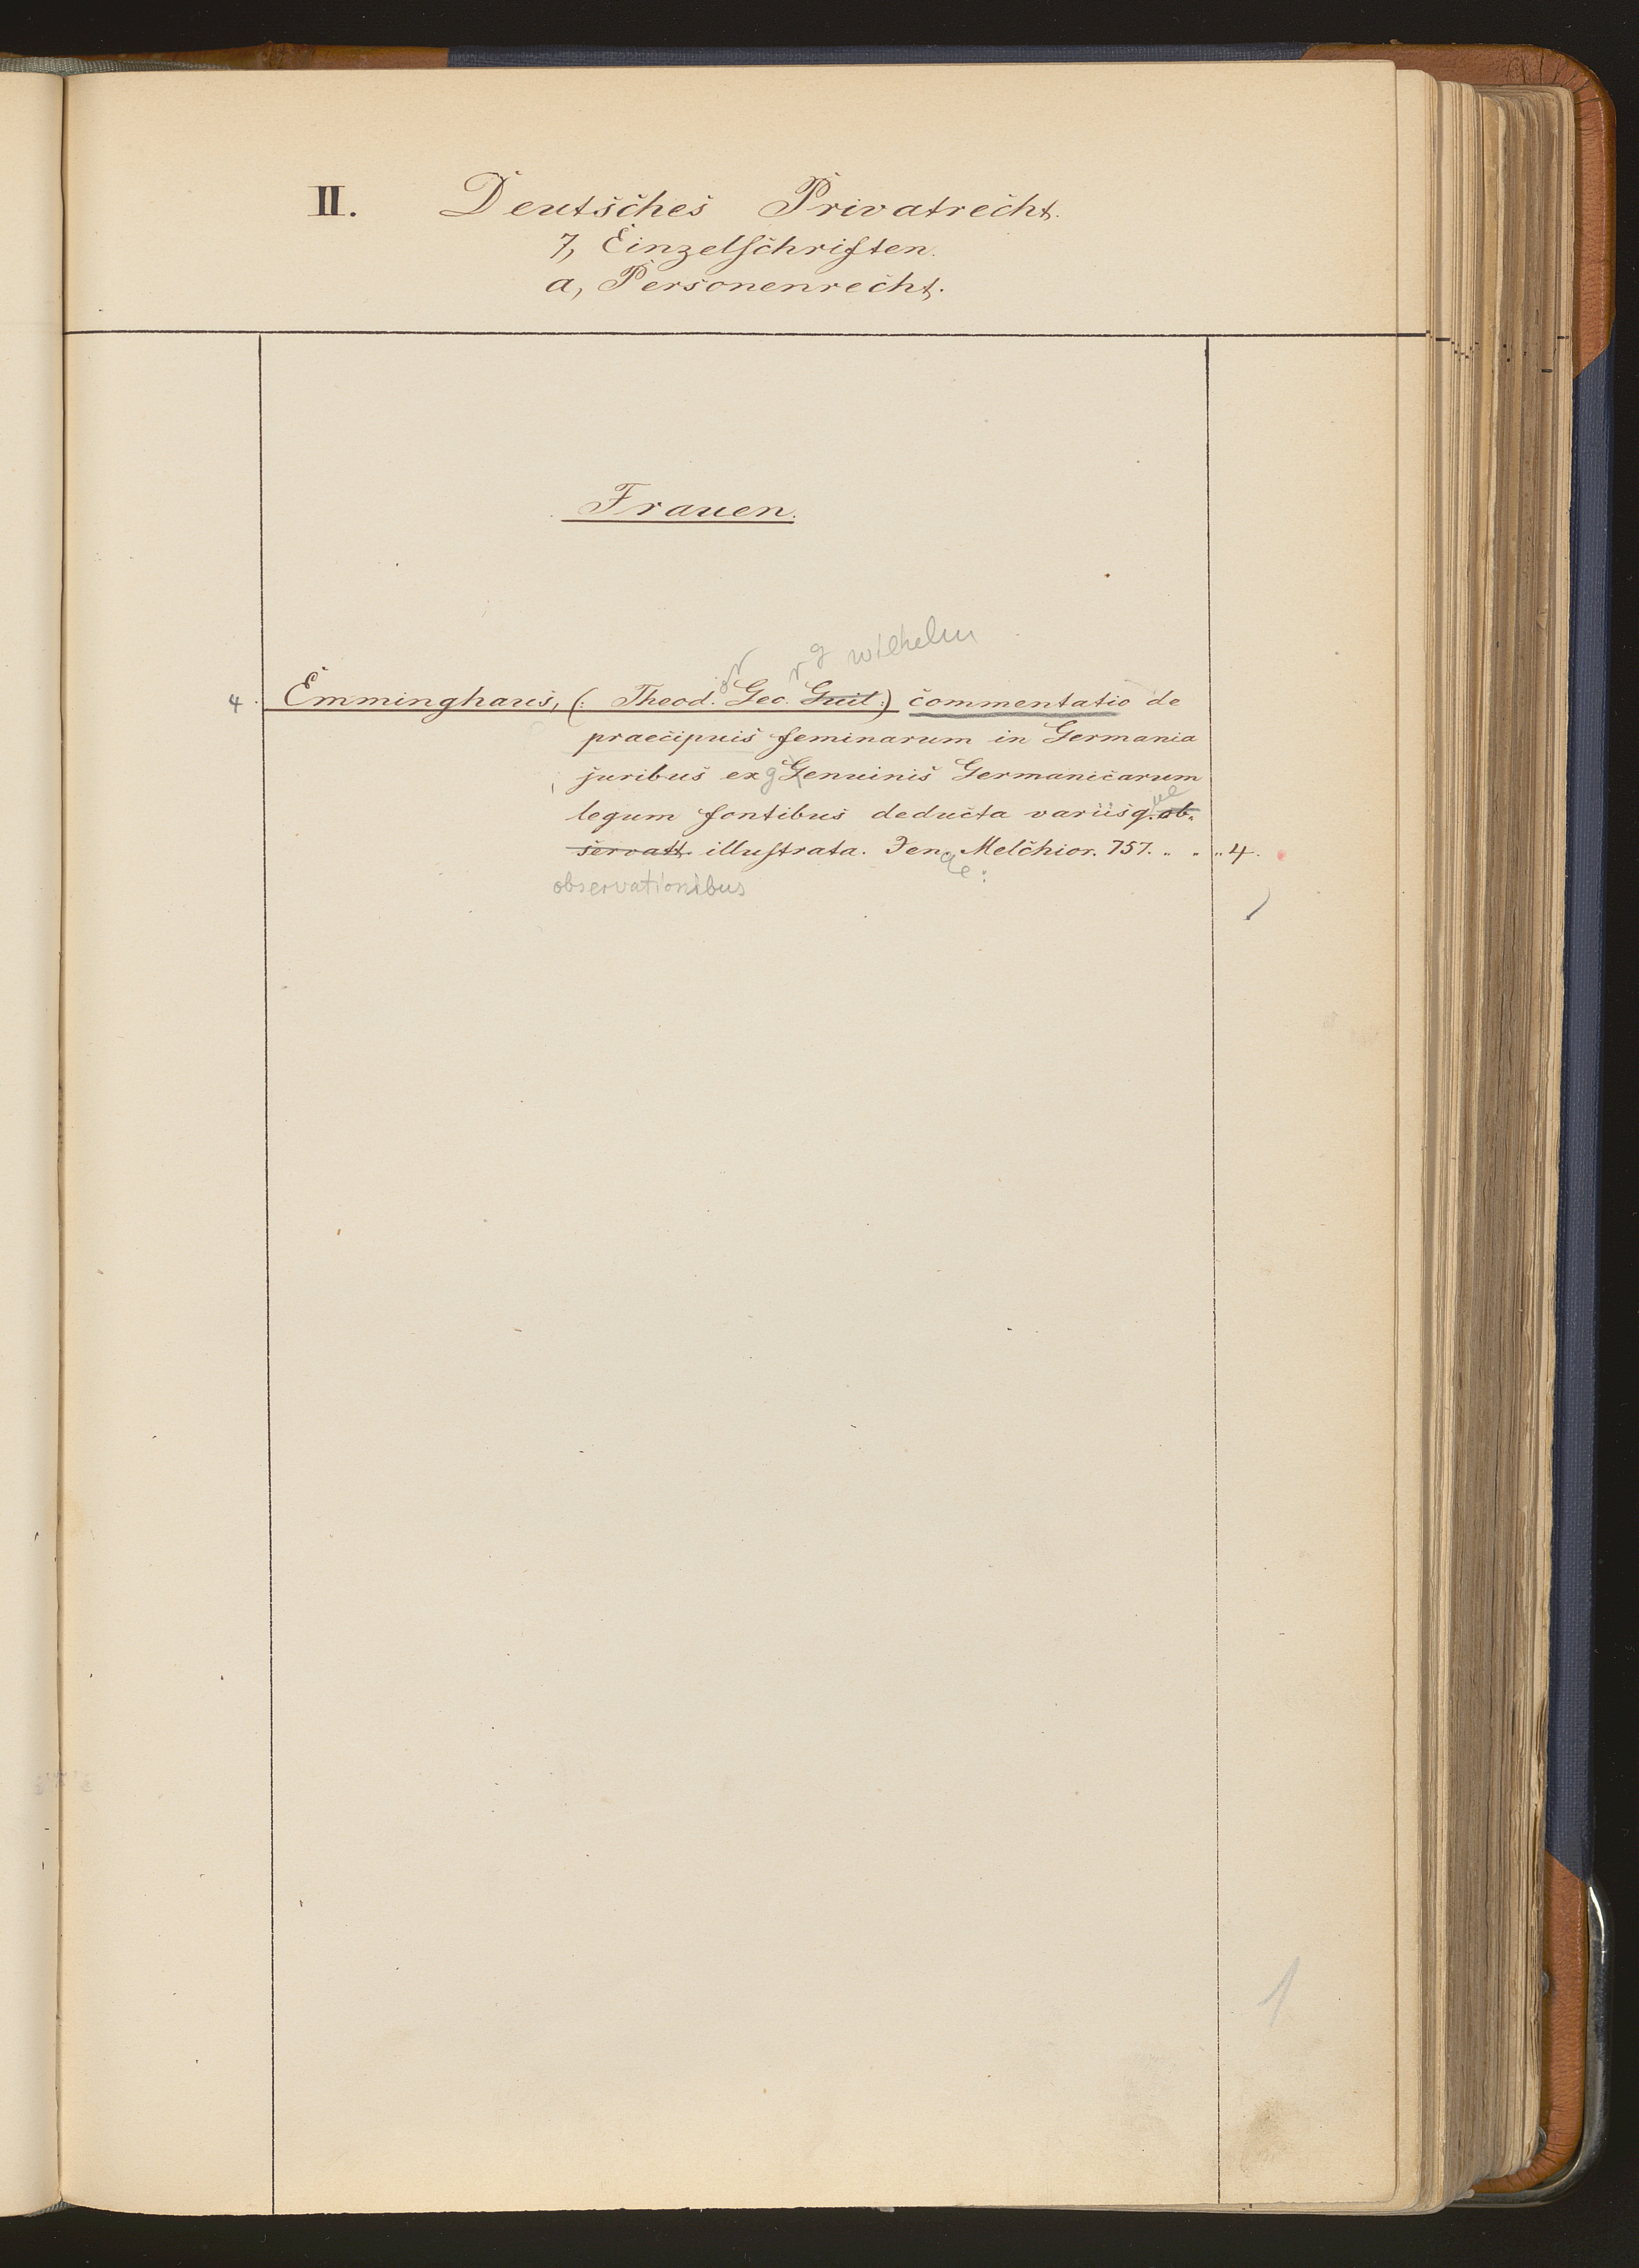 II. Deutsches Privatrecht.
7, Einzelschriften.
a, Personenrecht.
Frauen.
or rg Wilhelm
4. Emminghaus, (: Theod. Geo. Guil :) commentatio de
praecipuis feminarum in Germania
juribus ex g Genuinis Germanicarum
ue
legum fontibus deducta variisq. ob-
servatt. illustrata. Jen. Melchior. 757. „ „ „ 4.
ae :
observationibus
1